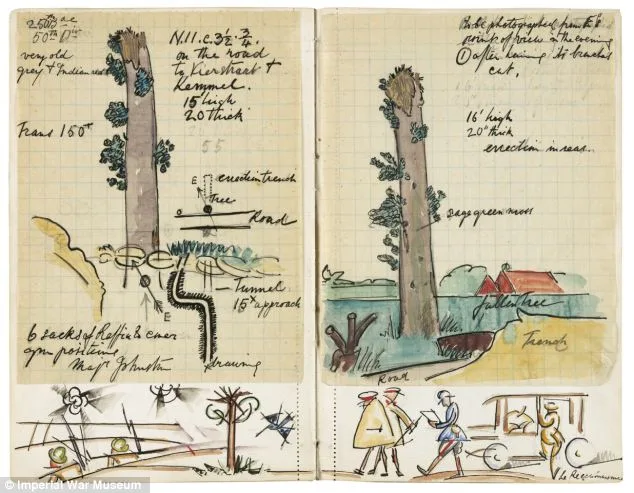 50th Div
very old
grey & Indian red
Trans 150+
N.11.c.3½ ¾
on the road
to Kierstraat &
Kemmel.
15' high
20" thick
55
erection trench
E
Tree
Road
tunnel
15x approach
E
6 sacks of Raffia to cover
gun positions
Majr Johnston
drawing
To be photographed from
point of view in the evening
① after having its branches
cut.
16' high
20" thick
erection in rear.
sage green moss
fallen tree
Trench
Road
© Imperial War Museum